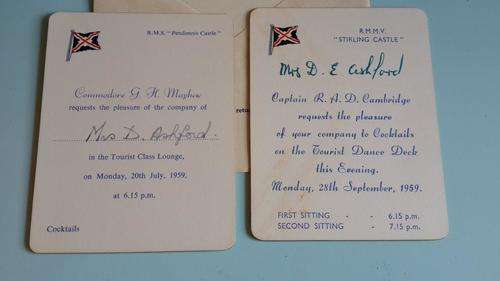 R.M.S. "Pendennis Castle"
Commodore G. H. Mayhew
requests the pleasure of the company of
Mrs D. Ashford.
in the Tourist Class Lounge,
on Monday, 20th July, 1959,
at 6.15 p.m.
Cocktails
R.M.M.V.
"STIRLING CASTLE"
Mrs D. E Ashford
Captain R. A. D. Cambridge
requests the pleasure
of your company to Cocktails
on the Tourist Dance Deck
this Evening.
Monday, 28th September, 1959.
FIRST SITTING - - 6.15 p.m.
SECOND SITTING - 7.15 p.m.